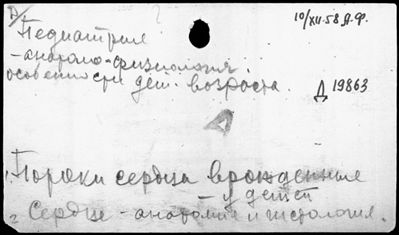 Д/
10/XII-58 Д.Ф.
Педиатрия
-анатомо-физиология.
особенности дет. возраста.
Д 19863
Д
1. Пороки сердца врожденные
- у детей
2 Сердце - анатомия и гистология.